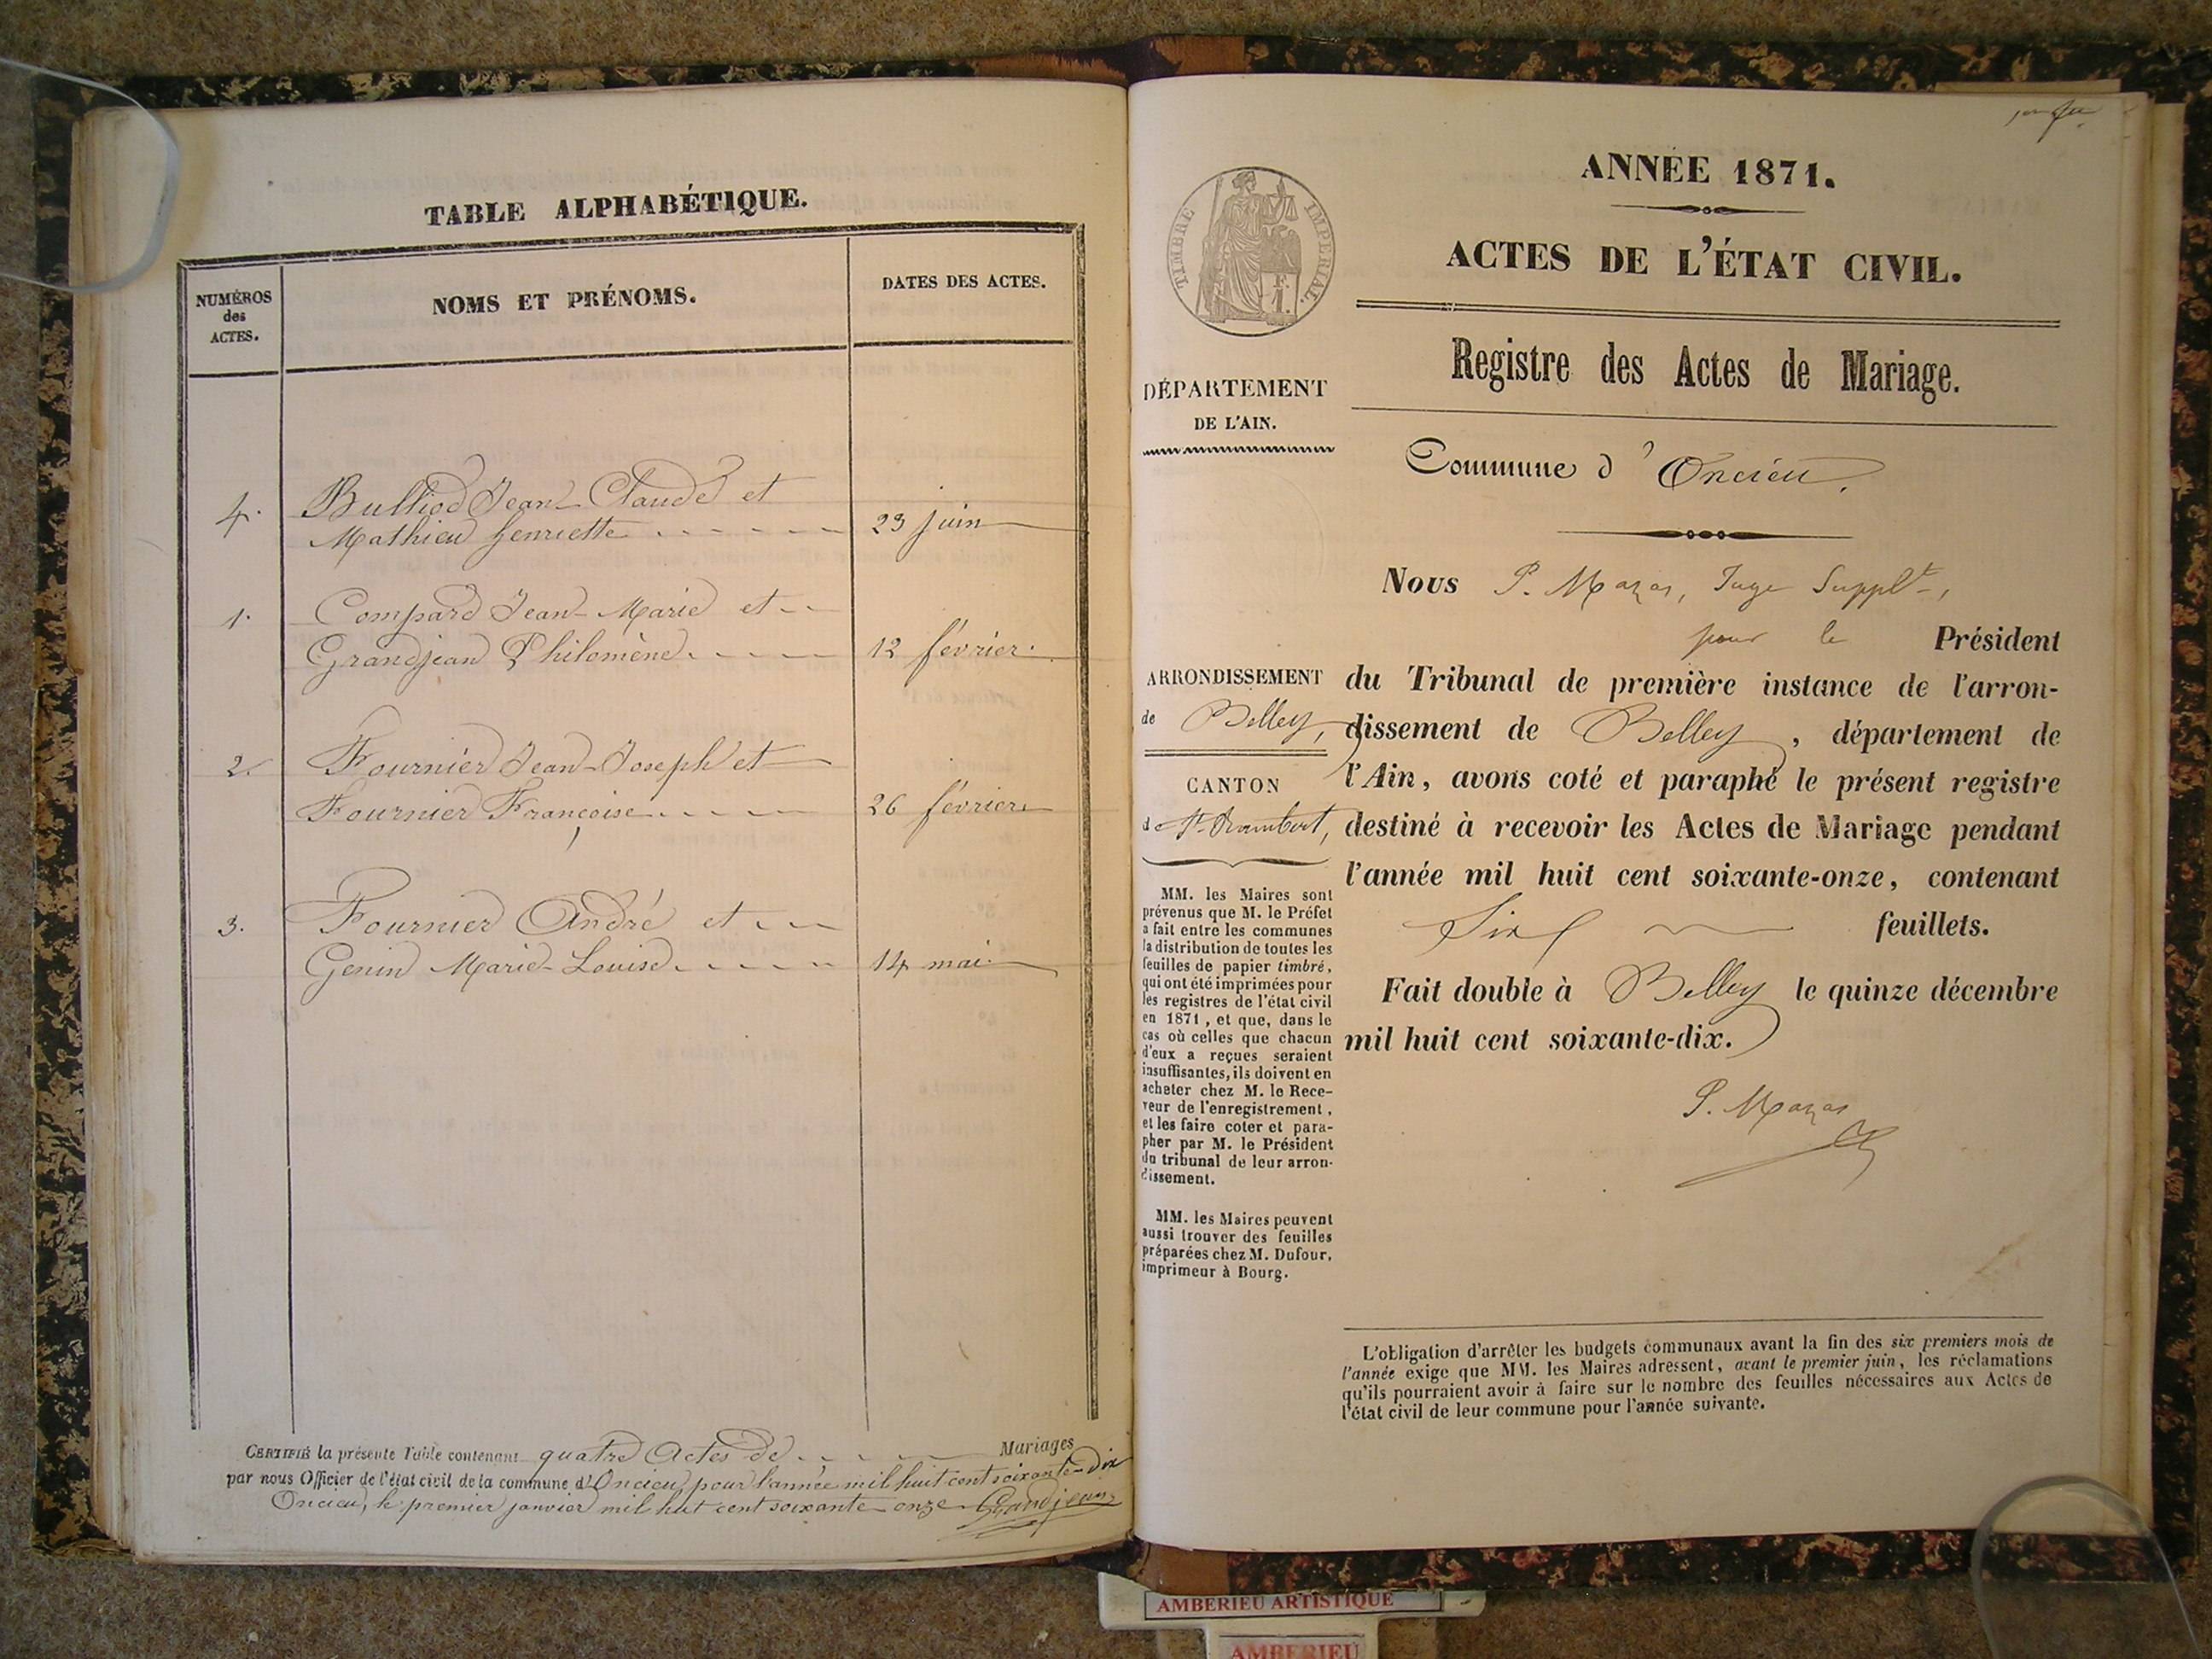 TABLE ALPHABÉTIQUE.
NUMÉROS
des
ACTES.
NOMS ET PRÉNOMS.
DATES DES ACTES.
4. Bulliod Jean-Claude et
Mathieu henriette 23 juin
1. Compard Jean-Marie et
Grandjean Philomène 12 février.
2. Fournier Jean-Joseph et
Fournier Françoise 26 février
3. Fournier André et
Genin Marie-Louise 14 mai
CERTIFIÉ la présente Table contenant quatre Actes de Mariages
par nous Officier de l'état civil de la commune d'Oncieu, pour l'année mil huit cent soixante-dix
Oncieu, le premier janvier mil huit cent soixante-onze Grandjean
ANNÉE 1871.
ACTES DE L'ÉTAT CIVIL.
TIMBRE IMPÉRIAL.
Registre des Actes de Mariage.
DÉPARTEMENT
DE L'AIN.
Commune d'Oncieu.
Nous P. Mazas, Juge Supplt,
pour le Président
ARRONDISSEMENT
de Belley,
CANTON
de St. Rambert,
du Tribunal de première instance de l'arron-
dissement de Belley, département de
l'Ain, avons coté et paraphé le présent registre
destiné à recevoir les Actes de Mariage pendant
l'année mil huit cent soixante-onze, contenant
Six feuillets.
Fait double à Belley le quinze décembre
mil huit cent soixante-dix.
P. Mazas
MM. les Maires sont
prévenus que M. le Préfet
a fait entre les communes
la distribution de toutes les
feuilles de papier timbré,
qui ont été imprimées pour
les registres de l'état civil
en 1871, et que, dans le
cas où celles que chacun
d'eux a reçues seraient
insuffisantes, ils doivent en
acheter chez M. le Rece-
veur de l'enregistrement,
et les faire coter et para-
pher par M. le Président
du tribunal de leur arron-
dissement.
MM. les Maires peuvent
aussi trouver des feuilles
préparées chez M. Dufour,
imprimeur à Bourg.
L'obligation d'arrêter les budgets communaux avant la fin des six premiers mois de
l'année exige que MM. les Maires adressent, avant le premier juin, les réclamations
qu'ils pourraient avoir à faire sur le nombre des feuilles nécessaires aux Actes de
l'état civil de leur commune pour l'année suivante.
AMBERIEU ARTISTIQUE
AMBERIEU